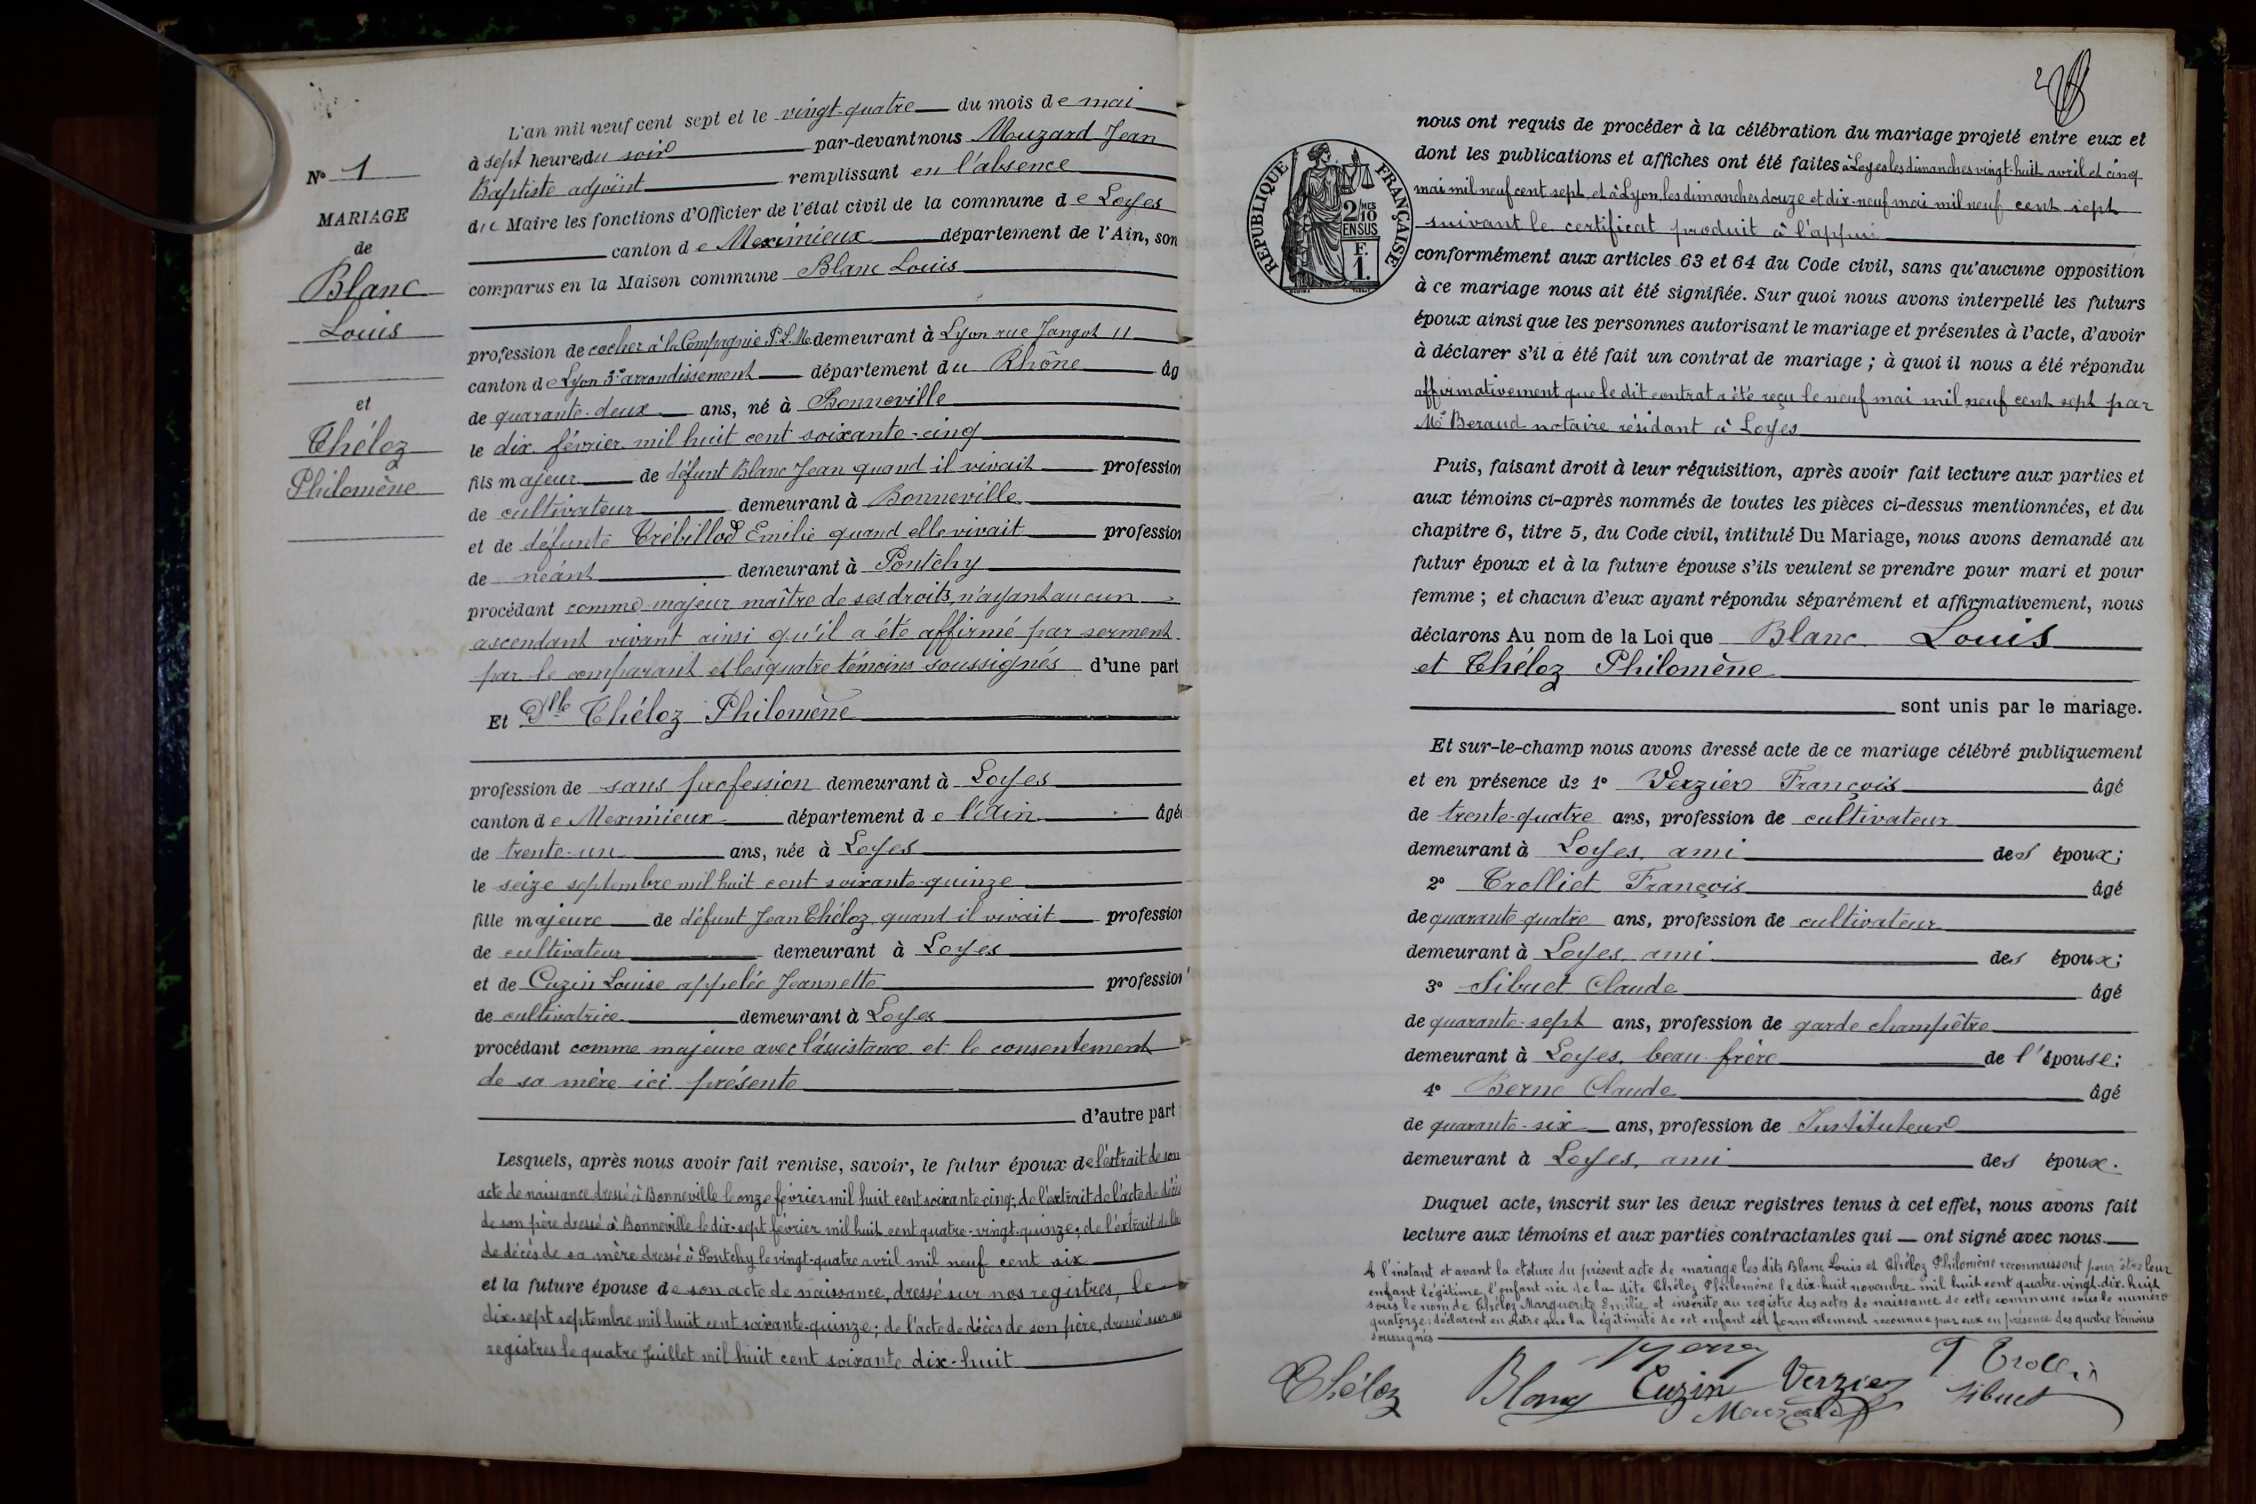 N° 1
MARIAGE
de
Blanc
Louis
et
Théloz
Philomène
L'an mil neuf cent sept et le vingt-quatre du mois de mai
à sept heures du soir par-devant nous Mouzard Jean
Baptiste adjoint remplissant en l'absence
du Maire les fonctions d'Officier de l'état civil de la commune de Loyes
canton de Meximieux département de l'Ain, son
comparus en la Maison commune Blanc Louis
profession de cocher à la Compagnie P.L.M. demeurant à Lyon rue Jangot 11
canton de Lyon 3e arrondissement département du Rhône âg
de quarante-deux ans, né à Bonneville
le dix février mil huit cent soixante-cinq
fils majeur de défunt Blanc Jean quand il vivait profession
de cultivateur demeurant à Bonneville
et de défunte Trébillod Emilie quand elle vivait profession
de néant demeurant à Pontchy
procédant comme majeur maître de ses droits, n'ayant aucun
ascendant vivant ainsi qu'il a été affirmé par serment
par le comparant et les quatre témoins soussignés d'une part
Et Dlle Théloz Philomène
profession de sans profession demeurant à Loyes
canton de Meximieux département de l'Ain âgé
de trente-un ans, née à Loyes
le seize septembre mil huit cent soixante-quinze
fille majeure de défunt Jean Théloz quand il vivait profession
de cultivateur demeurant à Loyes
et de Cuzin Louise appelée Jeannette profession
de cultivatrice demeurant à Loyes
procédant comme majeure avec l'assistance et le consentement
de sa mère ici présente
d'autre part
Lesquels, après nous avoir fait remise, savoir, le futur époux de l'extrait de son
acte de naissance dressé à Bonneville le onze février mil huit cent soixante-cinq; de l'extrait de l'acte de décès
de son père dressé à Bonneville le dix-sept février mil huit cent quatre-vingt-quinze; de l'extrait de
de décès de sa mère dressé à Pontchy le vingt-quatre avril mil neuf cent six
et la future épouse de son acte de naissance, dressé sur nos registres, le
dix-sept septembre mil huit cent soixante-quinze; de l'acte de décès de son père, dressé sur nos
registres le quatre Juillet mil huit cent soixante dix-huit
RÉPUBLIQUE FRANÇAISE
2/10 MES
EN SUS
F.
1.
nous ont requis de procéder à la célébration du mariage projeté entre eux et
dont les publications et affiches ont été faites à Loyes les dimanches vingt-huit avril et cinq
mai mil neuf cent sept et à Lyon, les dimanches douze et dix-neuf mai mil neuf cent sept
suivant le certificat produit à l'appui
conformément aux articles 63 et 64 du Code civil, sans qu'aucune opposition
à ce mariage nous ait été signifiée. Sur quoi nous avons interpellé les futurs
époux ainsi que les personnes autorisant le mariage et présentes à l'acte, d'avoir
à déclarer s'il a été fait un contrat de mariage; à quoi il nous a été répondu
affirmativement que le dit contrat a été reçu le neuf mai mil neuf cent sept par
Me Beraud notaire résidant à Loyes
Puis, faisant droit à leur réquisition, après avoir fait lecture aux parties et
aux témoins ci-après nommés de toutes les pièces ci-dessus mentionnées, et du
chapitre 6, titre 5, du Code civil, intitulé Du Mariage, nous avons demandé au
futur époux et à la future épouse s'ils veulent se prendre pour mari et pour
femme; et chacun d'eux ayant répondu séparément et affirmativement, nous
déclarons Au nom de la Loi que Blanc Louis
et Théloz Philomène
sont unis par le mariage.
Et sur-le-champ nous avons dressé acte de ce mariage célébré publiquement
et en présence de 1° Verzier François âgé
de trente-quatre ans, profession de cultivateur
demeurant à Loyes, ami des époux;
2° Trolliet François âgé
de quarante-quatre ans, profession de cultivateur
demeurant à Loyes, ami des époux;
3° Sibuet Claude âgé
de quarante-sept ans, profession de garde champêtre
demeurant à Loyes, beau-frère de l'épouse;
4° Berne Claude âgé
de quarante-six ans, profession de Instituteur
demeurant à Loyes, ami des époux.
Duquel acte, inscrit sur les deux registres tenus à cet effet, nous avons fait
lecture aux témoins et aux parties contractantes qui ont signé avec nous.
A l'instant et avant la clôture du présent acte de mariage les dits Blanc Louis et Théloz Philomène reconnaissent pour être leur
enfant légitime, l'enfant née de la dite Théloz Philomène le dix-huit novembre mil huit cent quatre-vingt-dix-huit
sous le nom de Théloz Marguerite Emilie et inscrite au registre des actes de naissance de cette commune sous le numéro
quatorze; déclarent en outre que la légitimité de cet enfant est formellement reconnue par eux en présence des quatre témoins
soussignés
Théloz Blanc Cuzin Verzier Sibuet
Mouzard